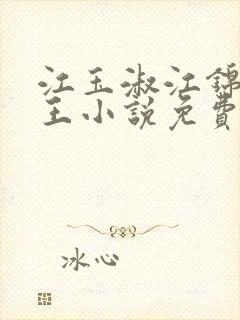 江玉淑江锦
王小說免費
冰心